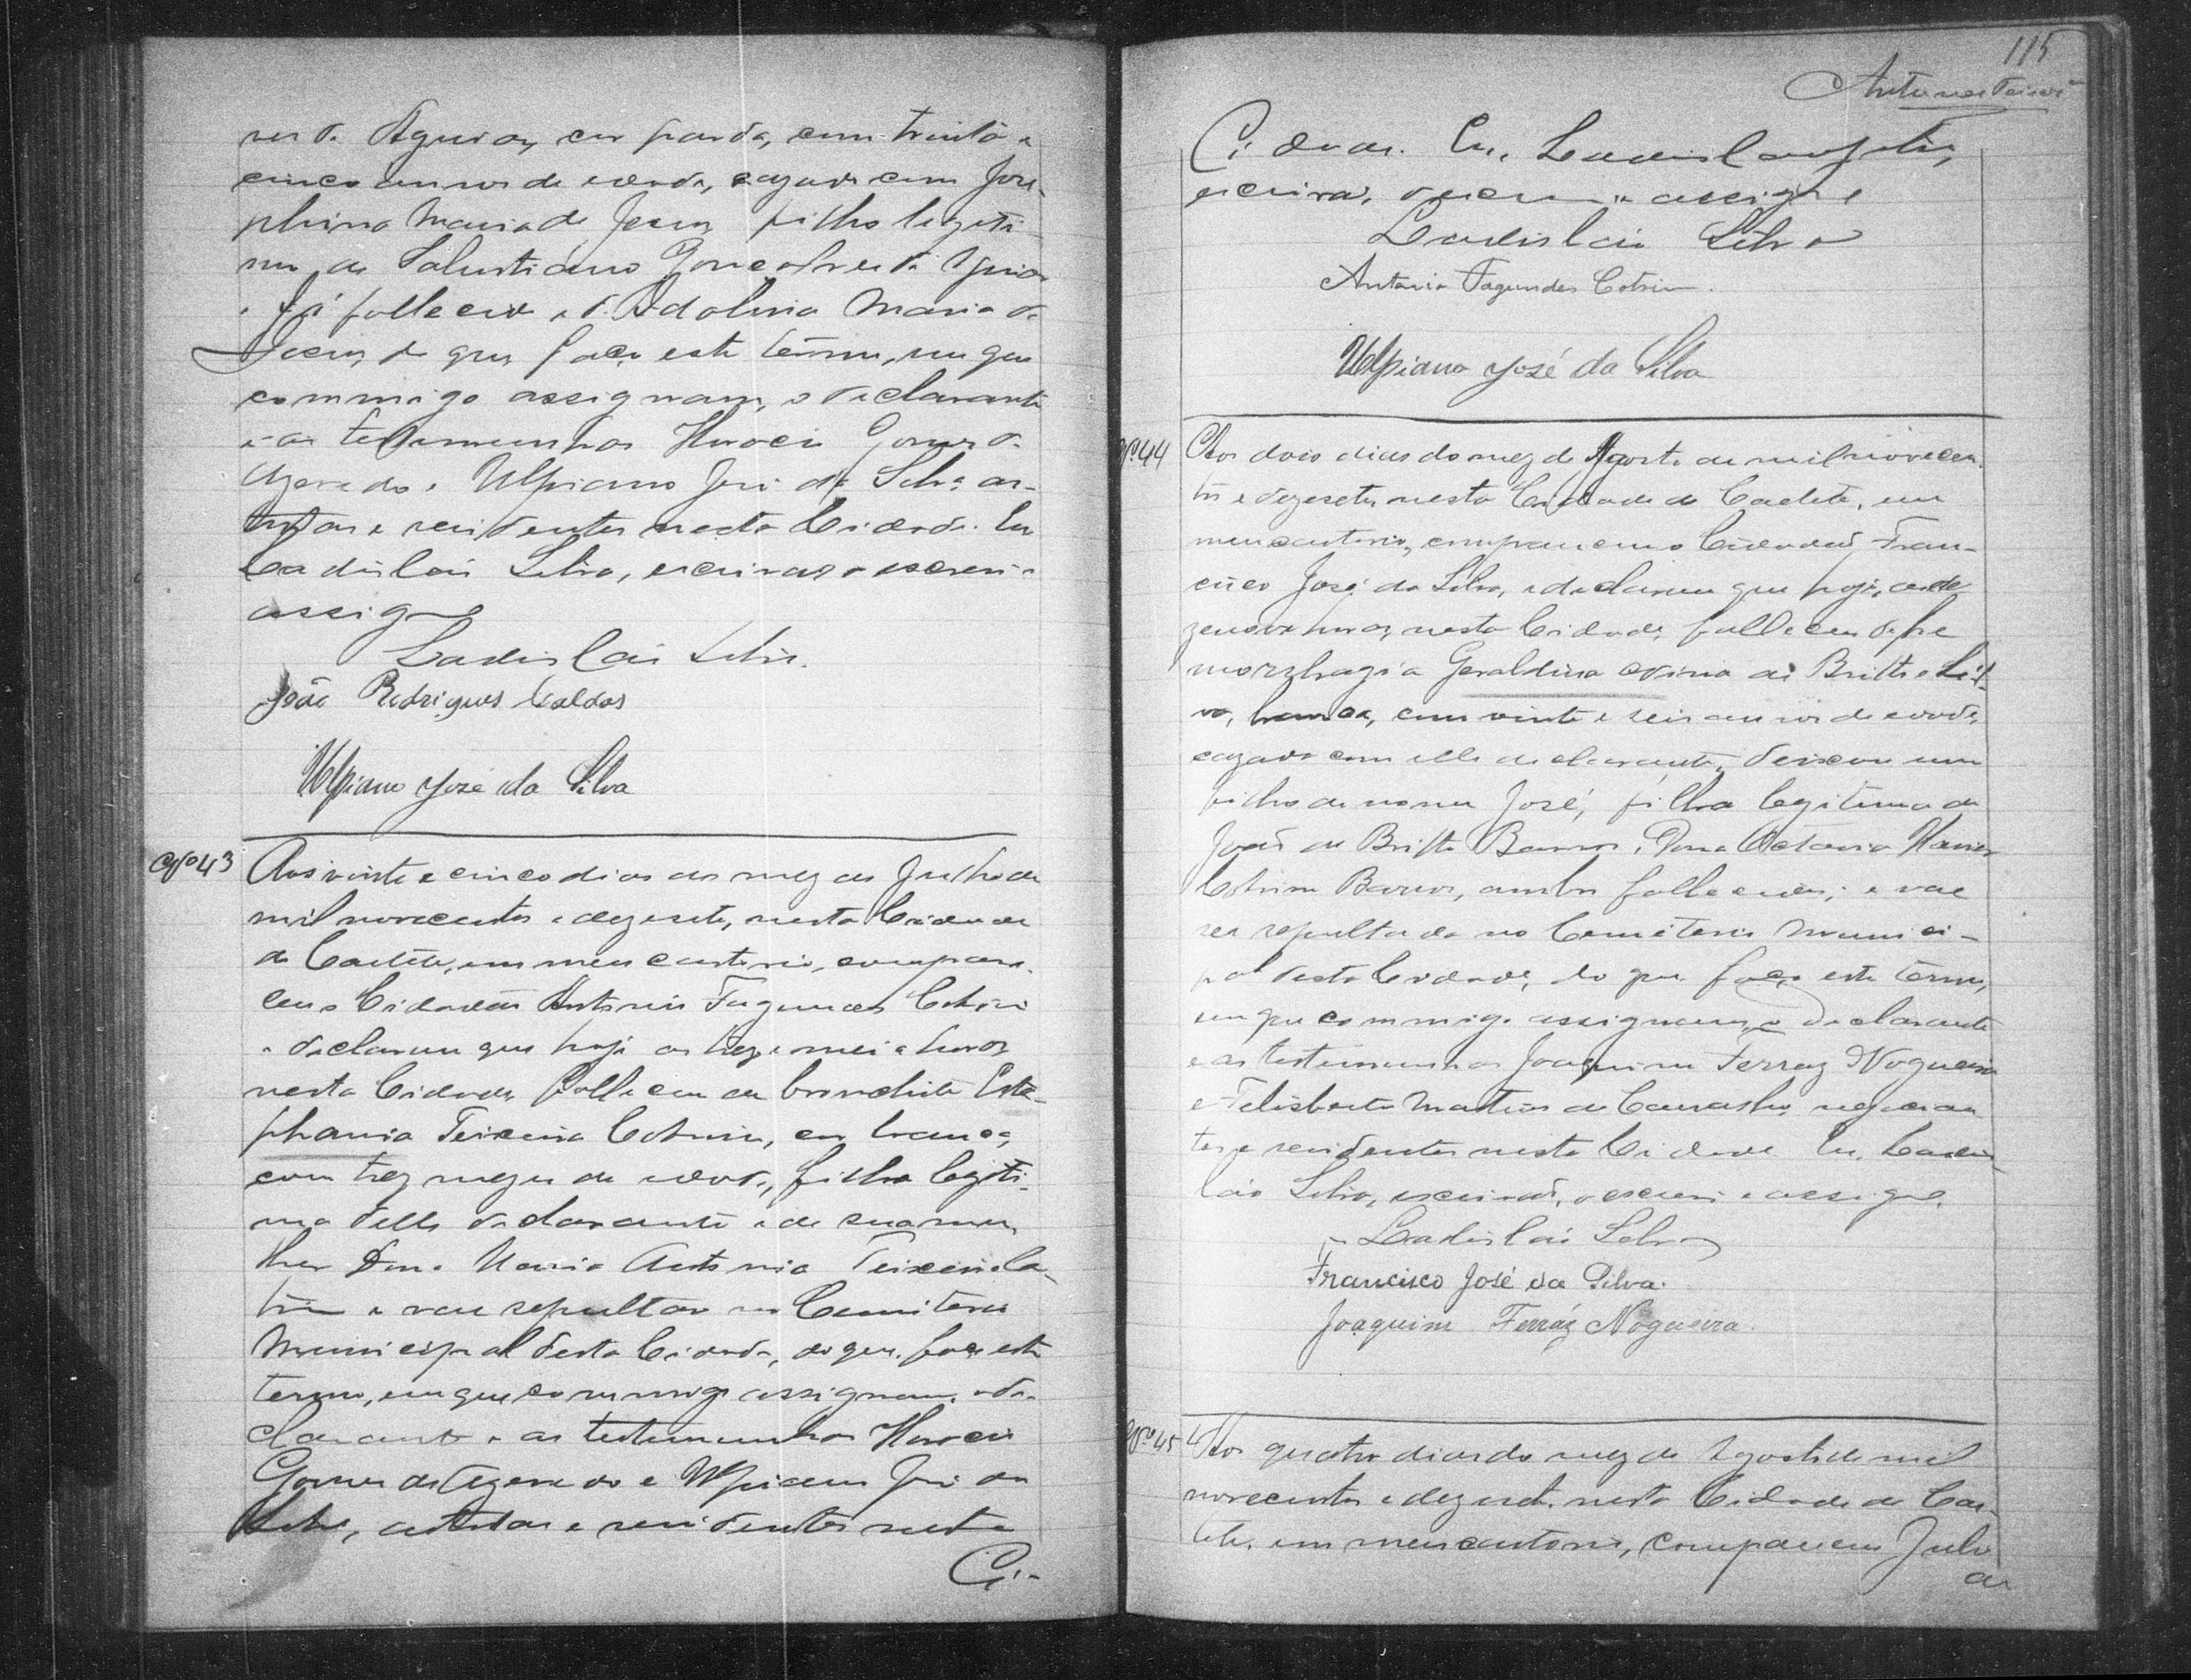 cor parda, com trinta e
cinco annos de edade, cazado com Jose-
phina Maria de Jesus, filho legiti-
mo de Salustiano Gonçalves de Aguiar
já fallecido e D. Maria de
Jesus, do que faço este termo, em que
commigo assignam, o declarante
e as testemunhas Horacio Gomes de
Azevedo e Ulpiano José da Silva, ar-
tistas e residentes nesta Cidade. Eu
Ladislau Silva, escrivão o escrevi e
assigno
Ladislau Silva.
João Rodrigues Caldas
Ulpiano José da Silva
Nº 43 Aos vinte e cinco dias do mez de Julho de
mil novecentos e dezesete, nesta Cidade
de Caeteté, em meu cartorio, compare-
ceu o Cidadão Antonio Fagundes Cotrim
e declarou que hoje as trez e meia horas
nesta Cidade, falleceu de bronchite Este-
phania Teixeira Cotrim, cor branca,
com trez mezes de edade, filha legiti-
ma delle declarante e de sua mu-
lher Dona Maria Antonia Teixeira Co-
trim e vae sepultar no Cemiterio
Municipal desta Cidade, do que faço este
termo, em que commigo assignam, o de-
clarante e as testemunhas Horacio
Gomes de Azevedo e Ulpiano José da
Silva, artistas e residentes nesta
Ci-
115
Antunes Teixeira
Cidade. Eu, Ladislau Silva,
escrivão, o escrevi e assigno
Ladislau Silva
Antonio Fagundes Cotrim.
Ulpiano José da Silva
Nº 44 Aos dois dias do mez de Agosto de mil novecen-
tos e dezesete, nesta Cidade de Caeteté, em
meu cartorio, compareceu o Cidadão Fran-
cisco José da Silva, e declarou que hoje, as de-
zenove horas, nesta Cidade, falleceu de he
morrhagia Geraldina de Britto e Sil-
va, branca, com vinte e seis annos de edade,
cazada com elle declarante, deixou um
filho de nome José, filha legitima de
João de Britto Barros e Dona Octavia Maria
Cotrim Barros, ambos fallecidos; e vae
ser sepultada no Cemiterio Munici-
pal desta Cidade, do que faço este termo,
em que commigo assignam, o declarante
e as testemunhas Joaquim Ferraz Nogueira
e Felisberto Martins de Carvalho, negocian
tes e residentes nesta Cidade. Eu, Ladis-
láo Silva, escrivão, o escrevi e assigno.
Ladisláo Silva
Francisco José da Silva.
Joaquim Ferráz Nogueira.
Nº 45 Aos quatro dias do mez de Agosto de mil
novecentos e dezesete, nesta Cidade de Cae-
teté, em meu cartorio, compareceu Julio
de